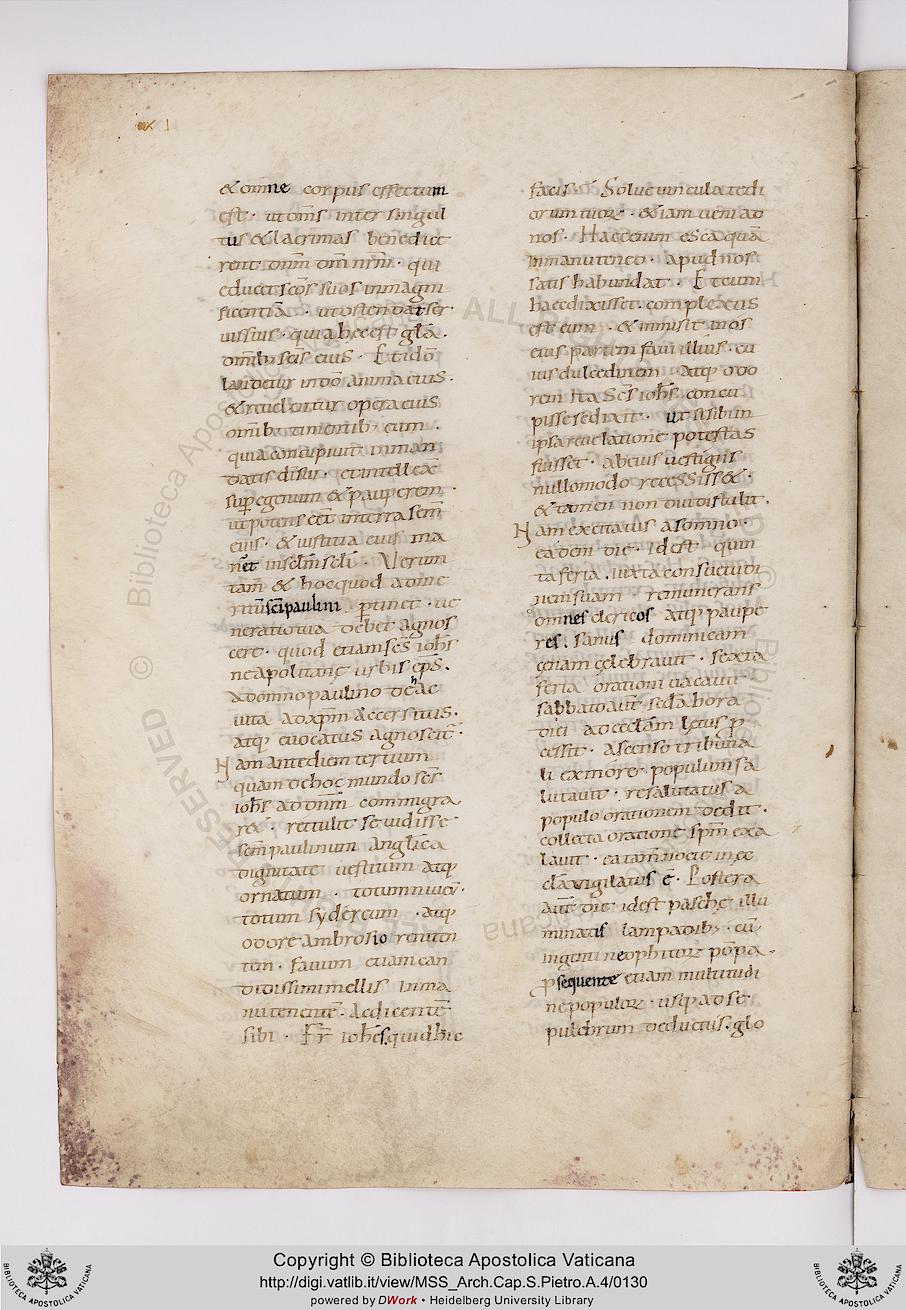 & om̄ne corpus effectum
est · ut om̄s inter singul
tus & lacrimas benedice
rent dn̄m dm̄ nr̄m · qui
educet sc̄os suos in magni
ficentia · ut ostendat̄ ser
uissuis · quia hęc est glā ·
omīb; sc̄is eius · Et idō
laudetur in dō anima eius ·
& reuelentur opera eius
omīb; timentib; eum ·
quia concupiuit in man
datis d̄i sui · et intellex̄
sup̱ egenum & pauperem ·
ut potens eēt in terra sem̄
eius · & iustitia eius ma
net in sc̄lm sc̄li · Verum
tam̄ & hoc quod ad me
ritū sc̄i paulini p̱tinet · ue
neratio uia debet agnos
cere · quod etiam sc̄s ioh̄s
neapolitanę urbis ep̄s ·
a domno paulino de hac
uita ad xp̄m accersitus ·
atq; euocatus agnoscit̄ ·
Nam ante diem tertium
quam de hoc mundo sc̄s
ioh̄s ad dn̄m commigra
ret · rettulit se uidisse
sc̄m paulinum anglica
dignitate uestitum atq;
ornatum · totum niueū ·
totum sydereum · atq;
odore ambrosio reniten
tem · fauum etiam can
didissimi mellis in ma
nu tenentē · ac dicentē
sibi · Fr̄ ioh̄es, quid hic
facis · Solue uincula tedi
orum tuor̄ · & iam ueni ad
nos · Haec enim esca quā
in manu teneo · apud nos
satis habundat · Et cum
haec dixisset · complexus
est eum · & inmisit in os
eius partem faui illius · cu
ius dulcedinem · atq; odo
rem ita Sc̄s ioh̄s concu
pisse se dixit · ut si sibi in
ipsa reuelatione potestas
fuisset · ab eius uestigiis
nullomodo recessisset ·
& tamen non diu distulit ·
Nam excitatus a somno ·
eadem die · id est quin
ta feria · iuxta consuetudi
nem suam · remunerans
omnes clericos atq; paupe
res · sanus dominicam
cęnam cęlebrauit · sexta
feria orationi uacauit
sabbato aut̄ sec̄da hora
diei ad ecclām lętus p̱
cessit · ascenso tribuna
li ex more populum sa
lutauit · resalutatus a
populo orationem dedit ·
collecta oratione sp̄m exa
lauit · ea tam̄ nocte in ec
clā uigilatus ē · Postera
aut̄ die id est paschę illu
minatis lampadib; · cū
ingenti neophitor̄ pōpa ·
p̱sequente etiam multitudi
ne populor̄ · usq; ad se
pulchrum deductus · glo
Copyright © Biblioteca Apostolica Vaticana
http://digi.vatlib.it/view/MSS_Arch.Cap.S.Pietro.A.4/0130
powered by DWork • Heidelberg University Library